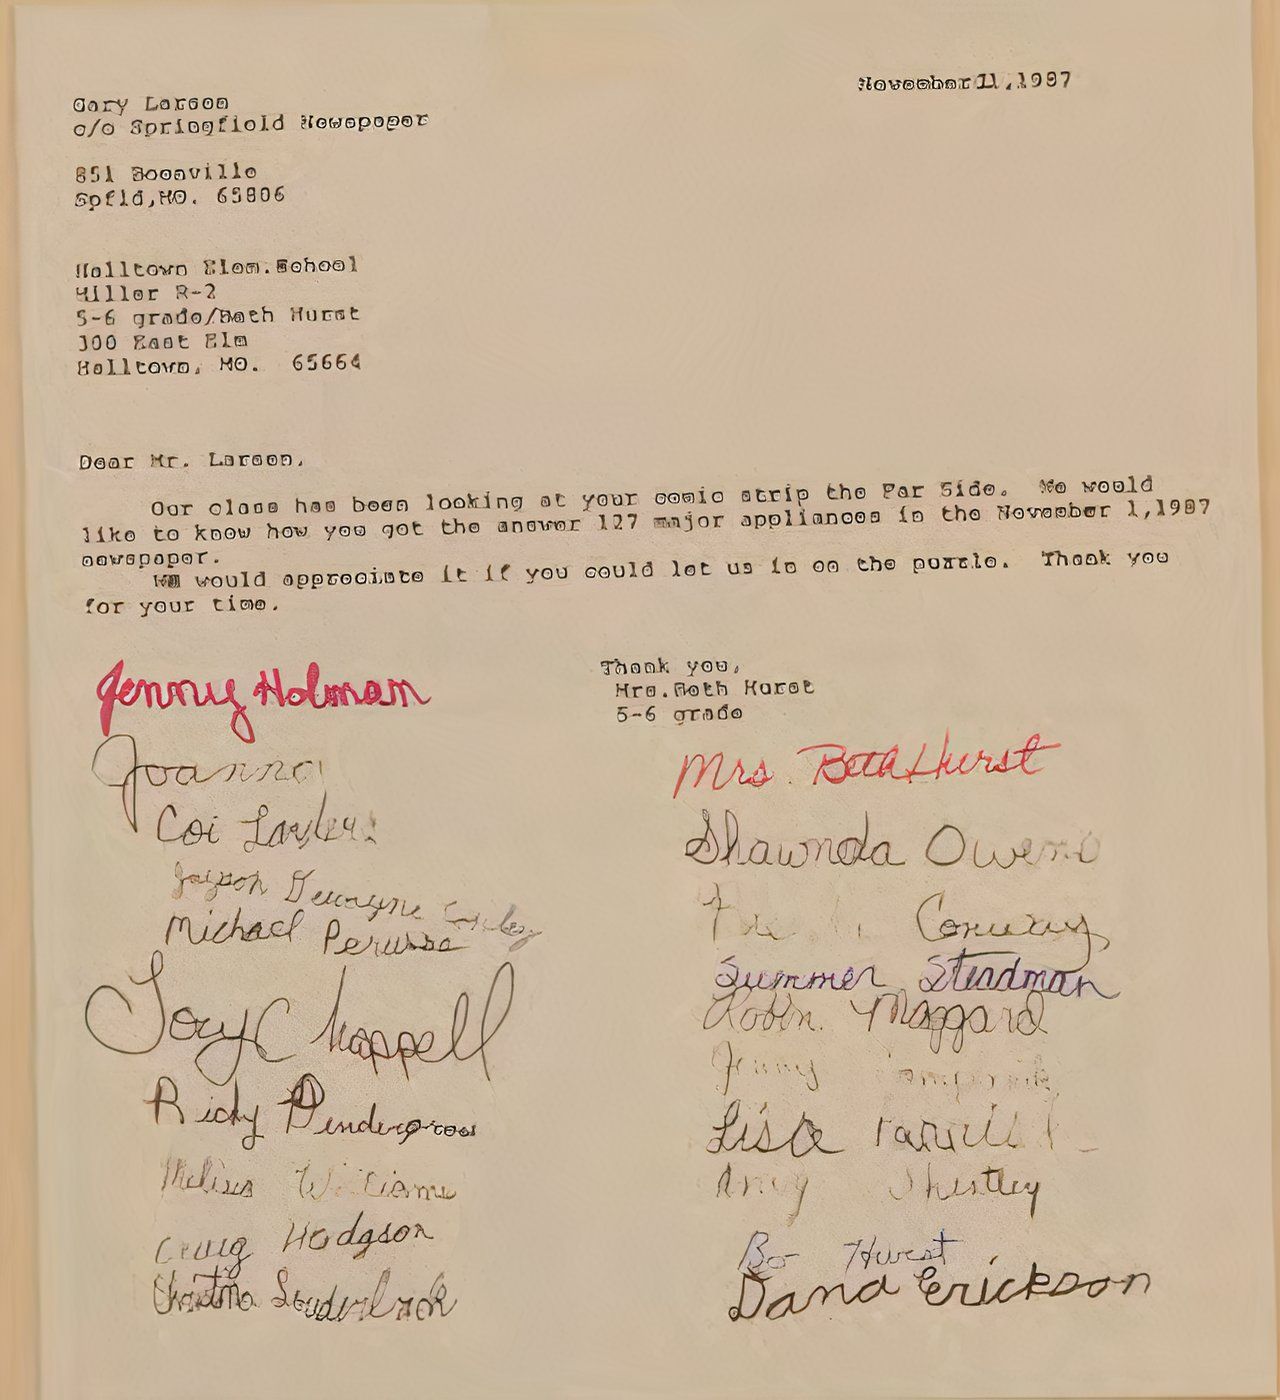 November 11,1987
Gary Larson
c/o Springfield Newspaper
851 Boonville
Spfld,MO. 65806
Halltown Elem.School
Miller R-2
5-6 grade/Beth Hurst
300 East Elm
Halltown, MO.  65664
Dear Mr. Larson,
Our class has been looking at your comic strip the Far Side.  We would
like to know how you got the answer 127 major appliances in the November 1,1987
newspaper.
We would appreciate it if you could let us in on the puzzle.  Thank you
for your time.
Thank you,
Mrs.Beth Hurst
5-6 grade
Jenny Holman
Mrs. Beth Hurst
Joanna
Shawnda Owens
Coi
Conway
Dewayne
Michael Perusse
Summer Steadman
Robin Maggard
Tony Chappell
Ricky Pendergrass
Lisa
Melissa Williams
Amy
Craig Hodgson
Bo Hurst
Christina Louderback
Dana Erickson